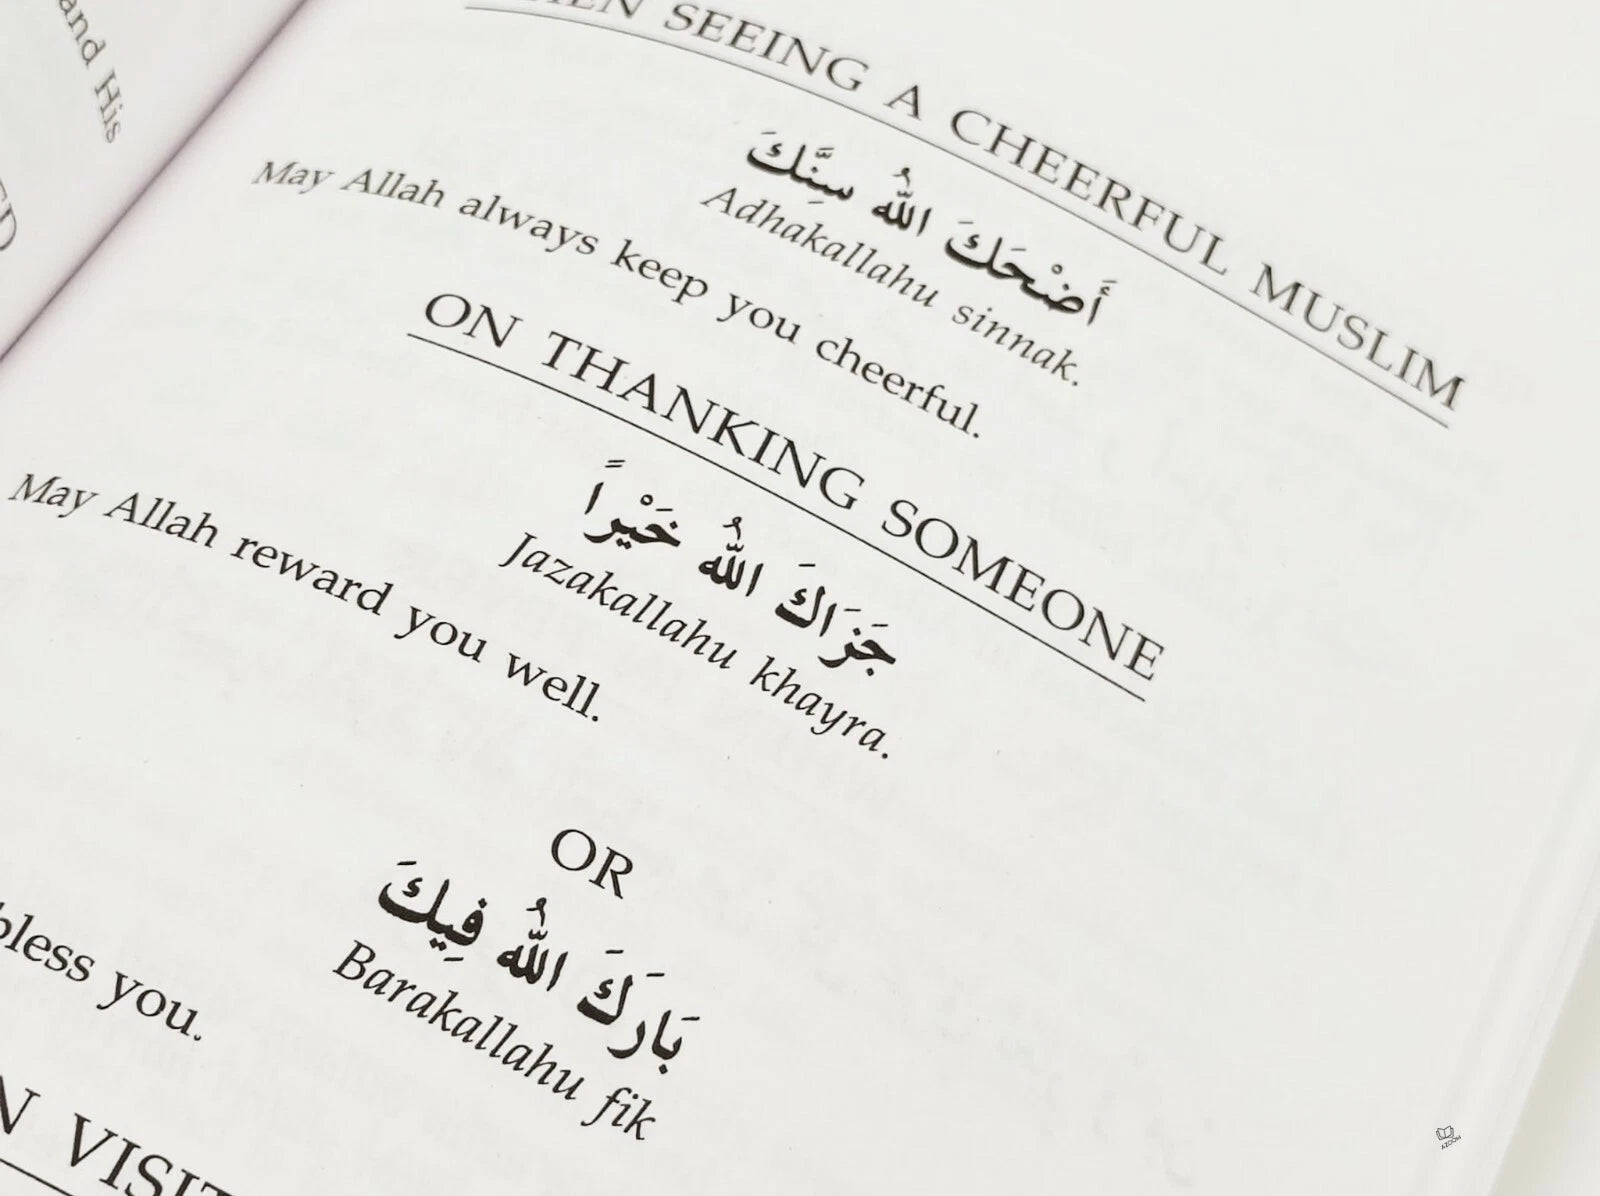 and His
SEEING A CHEERFUL MUSLIM
أَضْحَكَ اللهُ سِنَّكَ
Adhakallahu sinnak.
May Allah always keep you cheerful.
ON THANKING SOMEONE
جَزَاكَ اللهُ خَيْراً
Jazakallahu khayra.
May Allah reward you well.
OR
بَارَكَ اللهُ فِيكَ
Barakallahu fik
bless you.
VISIT
AZOOM